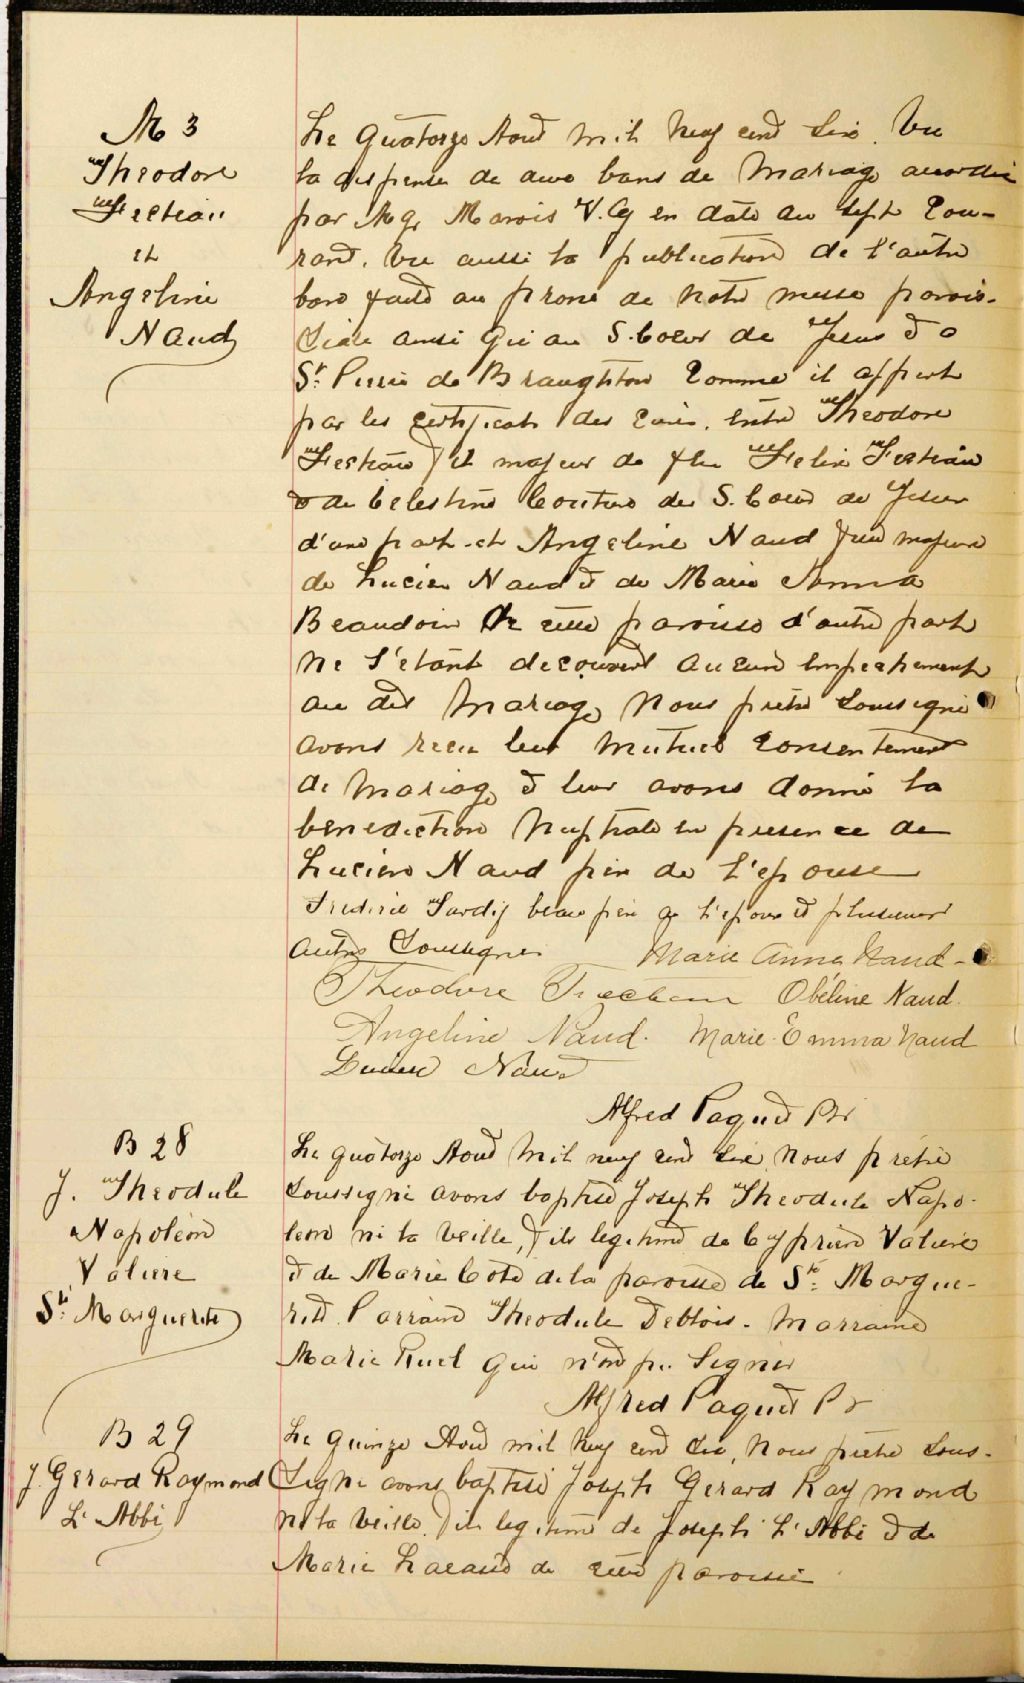 M 3
Theodore
Fecteau
et
Angeline
Naud
Le quatorze Aout mil neuf cent six. Vu
la dispense de deux bans de Mariage accordée
par Mgr Marois V.G en date du sept cou-
rant. Vu aussi la publication de l'autre
banc faite au prone de notre messe parois-
siale ainsi qu'au S. Coeur de Jesus et a
St. Pierre de Braughton comme il appert
par les certificats des curés. Entre Theodore
Fecteau fils majeur de feu Felix Fecteau
et de Celestine Couture du S. Coeur de Jesus
d'une part et Angeline Naud fille majeure
de Lucien Naud et de Marie Anna
Beaudoin de cette paroisse d'autre part
ne s'étant decouvert aucun empechement
au dit mariage Nous prêtre soussigné
avons recu leur mutuel consentement
de Mariage et leur avons donné la
benediction nuptiale en presence de
Lucien Naud père de l'epouse
Frederic Tardif beau père de l'epoux et plusieurs
autres soussignés Marie Anna Naud
Theodore Fecteau Obéline Naud.
Angeline Naud. Marie-Emma Naud
Lucien Naud
Alfred Paquet Ptr
B 28
J. Theodule
Napoléon
Valiere
Ste Marguerite
Le quatorze Aout mil neuf cent six, Nous prêtre
soussigné avons baptisé Joseph Theodule Napo-
leon né la veille, fils legitime de Cyprien Valiere
et de Marie Coté de la paroisse de Ste Margue-
rite. Parrain Theodule Deblois. Marraine
Marie Ruel qui n'ont pu signer
Alfred Paquet Ptr
B 29
J. Gerard Raymond
L'Abbé
Le quinze Aout mil neuf cent six, Nous prêtre sous-
signé avons baptisé Joseph Gerard Raymond
né la veille. fils legitime de Joseph L'Abbé et de
Marie de cette paroisse